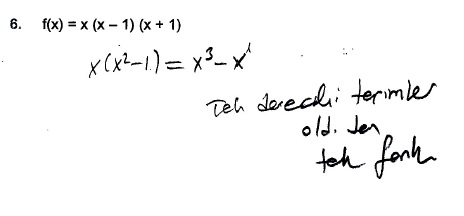 6. f(x) = x (x – 1) (x + 1)
x(x²-1) = x³ - x¹
Tek dereceli terimler
old. den
tek fonk